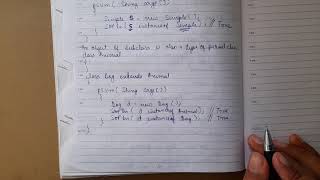 psvm( String args[])
{
Simple S = new Simple();
Sopln( S instanceof Simple); // True
}
}
An object of subclass is also a type of parent class
class Animal
{
}
class Dog extends Animal
{
psvm( String args[])
{
Dog d = new Dog();
Sopln( d instanceof Animal); // True
Sopln( d instanceof Dog); // True
}
}